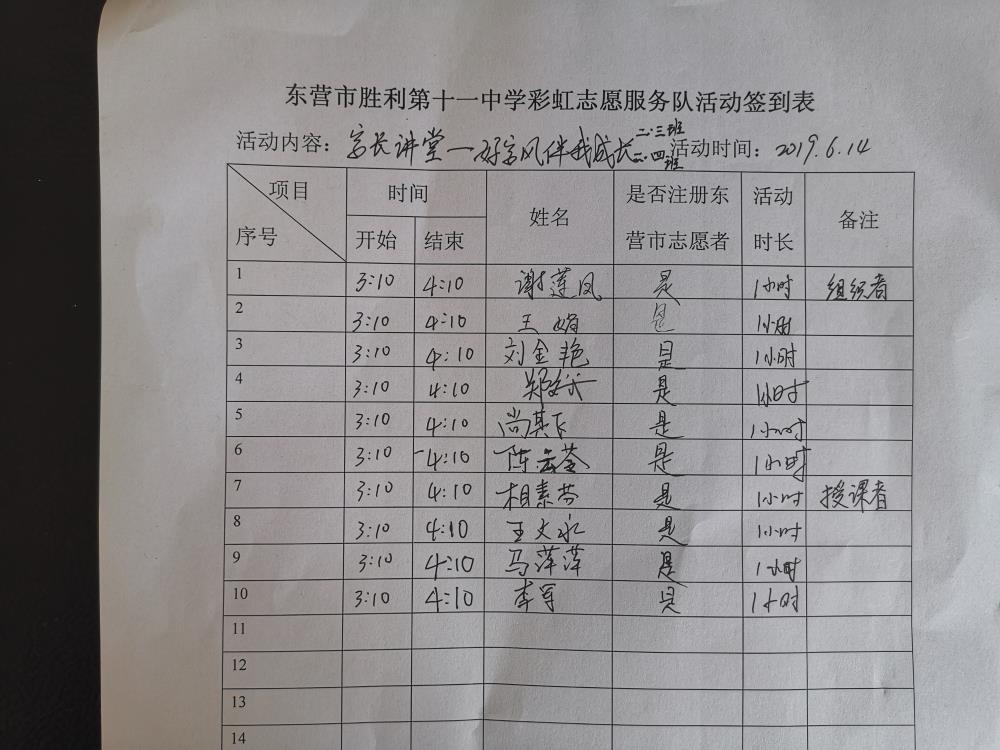 东营市胜利第十一中学彩虹志愿服务队活动签到表
活动内容：家长讲堂—好家风伴我成长 二.三班 二.四班 活动时间：2019.6.14
项目 时间 姓名 是否注册东营市志愿者 活动时长 备注
序号 开始 结束
1 3:10 4:10 谢莲凤 是 1小时 组织者
2 3:10 4:10 王娟 是 1小时
3 3:10 4:10 刘金艳 是 1小时
4 3:10 4:10 郑 是 1小时
5 3:10 4:10 尚其飞 是 1小时
6 3:10 4:10 陈云苓 是 1小时
7 3:10 4:10 相素芬 是 1小时 授课者
8 3:10 4:10 王文永 是 1小时
9 3:10 4:10 马萍萍 是 1小时
10 3:10 4:10 李军 是 1小时
11
12
13
14